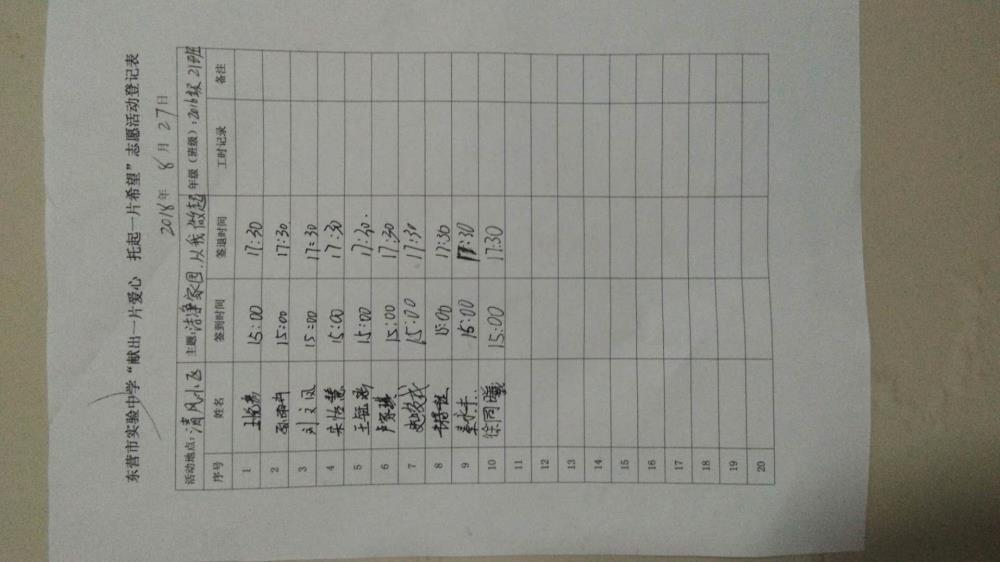 东营市实验中学“献出一片爱心 托起一片希望”志愿活动登记表
2018年 8 月 27日
活动地点：清风小区 主题：洁净家园，从我做起 年级（班级）：2016级21班
序号 姓名 签到时间 签退时间 工时记录 备注
1 15:00 17:30
2 15:00 17:30
3 刘文凤 15:00 17:30
4 宋怡慧 15:00 17:30
5 15:00 17:30.
6 15:00 17:30
7 15:00 17:30
8 15:00 17:30
9 15:00 17:30
10 徐同曦 15:00 17:30
11
12
13
14
15
16
17
18
19
20